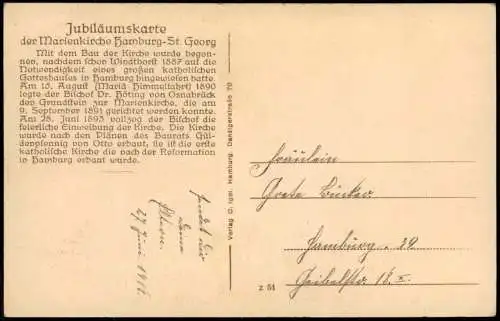 Jubiläumskarte
der Marienkirche Hamburg-St. Georg
Mit dem Bau der Kirche wurde begon-
nen, nachdem schon Windthorst 1887 auf die
Notwendigkeit eines großen katholischen
Gotteshauses in Hamburg hingewiesen hatte.
Am 15. August (Mariä Himmelfahrt) 1890
legte der Bischof Dr. Höting von Osnabrück
den Grundstein zur Marienkirche, die am
9. September 1891 gerichtet werden konnte.
Am 28. Juni 1893 vollzog der Bischof die
feierliche Einweihung der Kirche. Die Kirche
wurde nach den Plänen des Baurats Gül-
denpfennig von Otto erbaut, sie ist die erste
katholische Kirche die nach der Reformation
in Hamburg erbaut wurde.
sendet dir
deine
27 Juni
Verlag O. Igel, Hamburg, Danzigerstraße 70
Fräulein
Grete
Hamburg. 39
Geibelstr. 18. I.
z 51